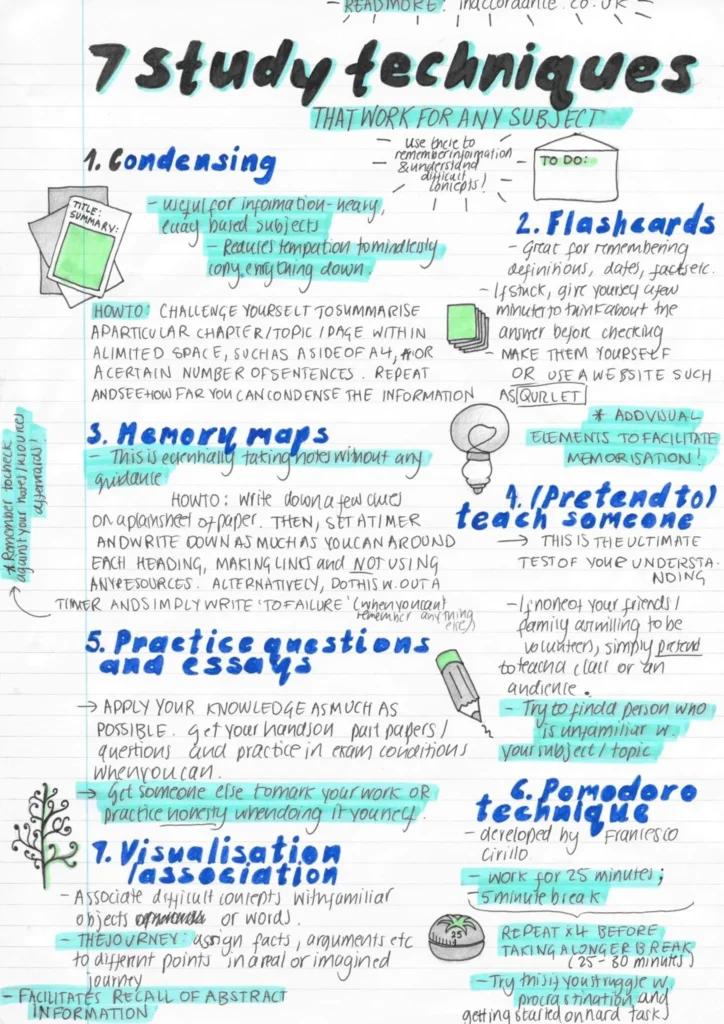 - READ MORE: inaccordance.co.uk -
7 study techniques
THAT WORK FOR ANY SUBJECT
use these to
remember information
& understand
difficult
concepts!
TO DO:
1. Condensing
TITLE:
SUMMARY:
- useful for information-heavy,
essay based subjects
- Reduces temptation to mindlessly
copy everything down.
HOW TO: CHALLENGE YOURSELF TO SUMMARISE
A PARTICULAR CHAPTER / TOPIC / PAGE WITHIN
A LIMITED SPACE, SUCH AS A SIDE OF A4, OR
A CERTAIN NUMBER OF SENTENCES. REPEAT
AND SEE HOW FAR YOU CAN CONDENSE THE INFORMATION
2. Flashcards
- Great for remembering
definitions, dates, facts etc.
- If stuck, give yourself a few
minutes to think about the
answer before checking
- MAKE THEM YOURSELF
OR USE A WEBSITE SUCH
AS QUIZLET
* ADD VISUAL
ELEMENTS TO FACILITATE
MEMORISATION!
3. Memory maps
- This is essentially taking notes without any
guidance
HOW TO: Write down a few clues
on a plain sheet of paper. THEN, SET A TIMER
AND WRITE DOWN AS MUCH AS YOU CAN AROUND
EACH HEADING, MAKING LINKS and NOT USING
ANY RESOURCES. ALTERNATIVELY, DO THIS W.OUT A
TIMER AND SIMPLY WRITE 'TO FAILURE' (when you can't
remember anything
else)
* Remember to check
against your notes/resources
afterwards!
4. (Pretend to)
teach someone
→ THIS IS THE ULTIMATE
TEST OF YOUR UNDERSTA-
NDING
- If none of your friends /
family are willing to be
volunteers, simply pretend
to teach a class or an
audience.
- Try to find a person who
is unfamiliar w.
your subject / topic
5. Practice questions
and essays
→ APPLY YOUR KNOWLEDGE AS MUCH AS
POSSIBLE. Get your hands on past papers /
questions and practice in exam conditions
when you can.
→ Get someone else to mark your work OR
practice honesty when doing it yourself.
6. Pomodoro
technique
- developed by Francesco
Cirillo
- work for 25 minutes;
5 minute break
25
REPEAT X4 BEFORE
TAKING A LONGER BREAK
(25-30 minutes)
- Try this if you struggle w.
procrastination and
getting started on hard tasks
7. Visualisation
/association
- Associate difficult concepts with familiar
objects or words.
- THE JOURNEY: assign facts, arguments etc
to different points in a real or imagined
journey
- FACILITATES RECALL OF ABSTRACT
INFORMATION